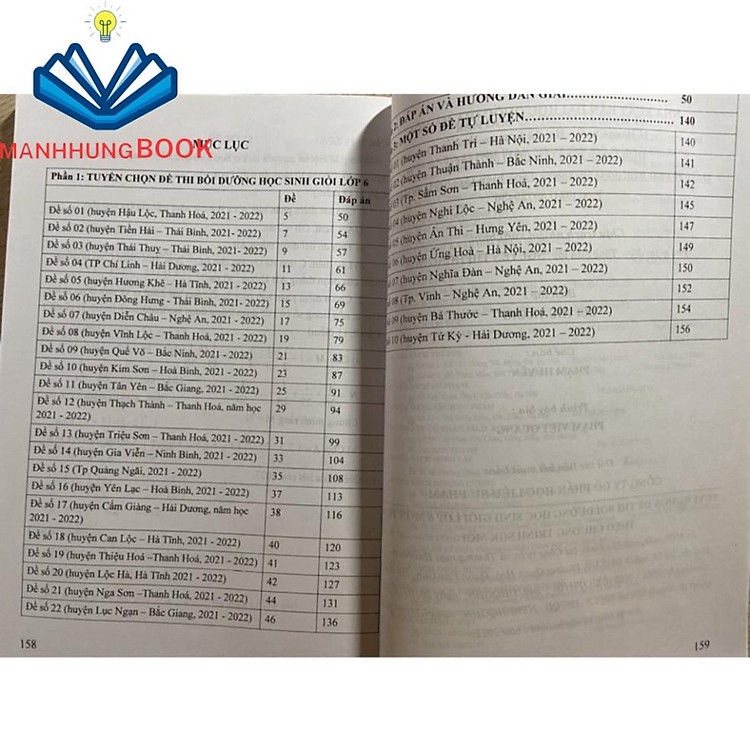 MANHHUNGBOOK
MỤC LỤC
Phần 1: TUYỂN CHỌN ĐỀ THI BỒI DƯỠNG HỌC SINH GIỎI LỚP 6
Đề Đáp án
Đề số 01 (huyện Hậu Lộc, Thanh Hoá, 2021 - 2022) 5 50
Đề số 02 (huyện Tiền Hải – Thái Bình, 2021 - 2022) 7 54
Đề số 03 (huyện Thái Thuỵ – Thái Bình, 2021 - 2022) 9 57
Đề số 04 (TP Chí Linh – Hải Dương, 2021 - 2022) 11 61
Đề số 05 (huyện Hương Khê – Hà Tĩnh, 2021 - 2022) 13 66
Đề số 06 (huyện Đông Hưng - Thái Bình, 2021- 2022) 15 69
Đề số 07 (huyện Diễn Châu – Nghệ An, 2021 - 2022) 17 75
Đề số 08 (huyện Vĩnh Lộc – Thanh Hoá, 2021 - 2022) 19 79
Đề số 09 (huyện Quế Võ – Bắc Ninh, 2021 - 2022) 21 83
Đề số 10 (huyện Kim Sơn – Hoà Bình, 2021 - 2022) 23 87
Đề số 11 (huyện Tân Yên – Bắc Giang, 2021 - 2022) 25 91
Đề số 12 (huyện Thạch Thành – Thanh Hoá, năm học 29 94
2021 - 2022)
Đề số 13 (huyện Triệu Sơn – Thanh Hoá, 2021 - 2022) 31 99
Đề số 14 (huyện Gia Viễn – Ninh Bình, 2021 - 2022) 33 104
Đề số 15 (Tp Quảng Ngãi, 2021 - 2022) 35 108
Đề số 16 (huyện Yên Lạc – Hoà Bình, 2021 - 2022) 37 113
Đề số 17 (huyện Cẩm Giàng – Hải Dương, năm học 38 116
2021 - 2022)
Đề số 18 (huyện Can Lộc – Hà Tĩnh, 2021 - 2022) 40 120
Đề số 19 (huyện Thiệu Hoá –Thanh Hoá, 2021 - 2022) 41 123
Đề số 20 (huyện Lộc Hà, Hà Tĩnh 2021 - 2022) 42 127
Đề số 21 (huyện Nga Sơn –Thanh Hoá, 2021 - 2022) 44 131
Đề số 22 (huyện Lục Ngạn – Bắc Giang, 2021 - 2022) 46 136
158
2: ĐÁP ÁN VÀ HƯỚNG DẪN GIẢI 50
3: MỘT SỐ ĐỀ TỰ LUYỆN 140
01 (huyện Thanh Trì – Hà Nội, 2021 – 2022) 140
02 (huyện Thuận Thành – Bắc Ninh, 2021 – 2022) 141
03 (Tp. Sầm Sơn – Thanh Hoá, 2021 – 2022) 142
04 (huyện Nghi Lộc – Nghệ An, 2021 – 2022) 145
05 (huyện Ân Thi – Hưng Yên, 2021 – 2022) 147
06 (huyện Ứng Hoà – Hà Nội, 2021 – 2022) 149
07 (huyện Nghĩa Đàn – Nghệ An, 2021 – 2022) 150
08 (Tp. Vinh – Nghệ An, 2021 – 2022) 152
09 (huyện Bá Thước – Thanh Hoá, 2021 – 2022) 154
10 (huyện Tứ Kỳ - Hải Dương, 2021 – 2022) 156
159